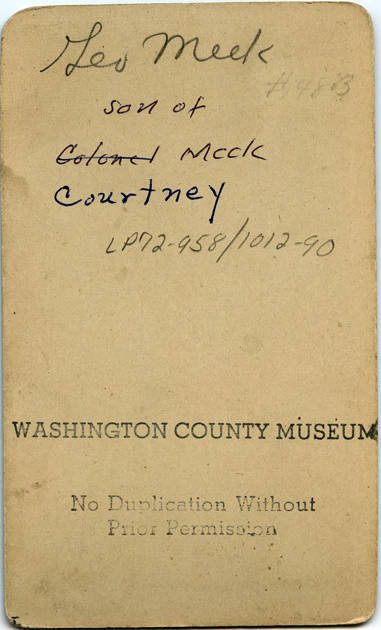 Geo Meek
#4883
son of
Colonel Meek
Courtney
LP72-958/1012-90
WASHINGTON COUNTY MUSEUM
No Duplication Without
Prior Permission